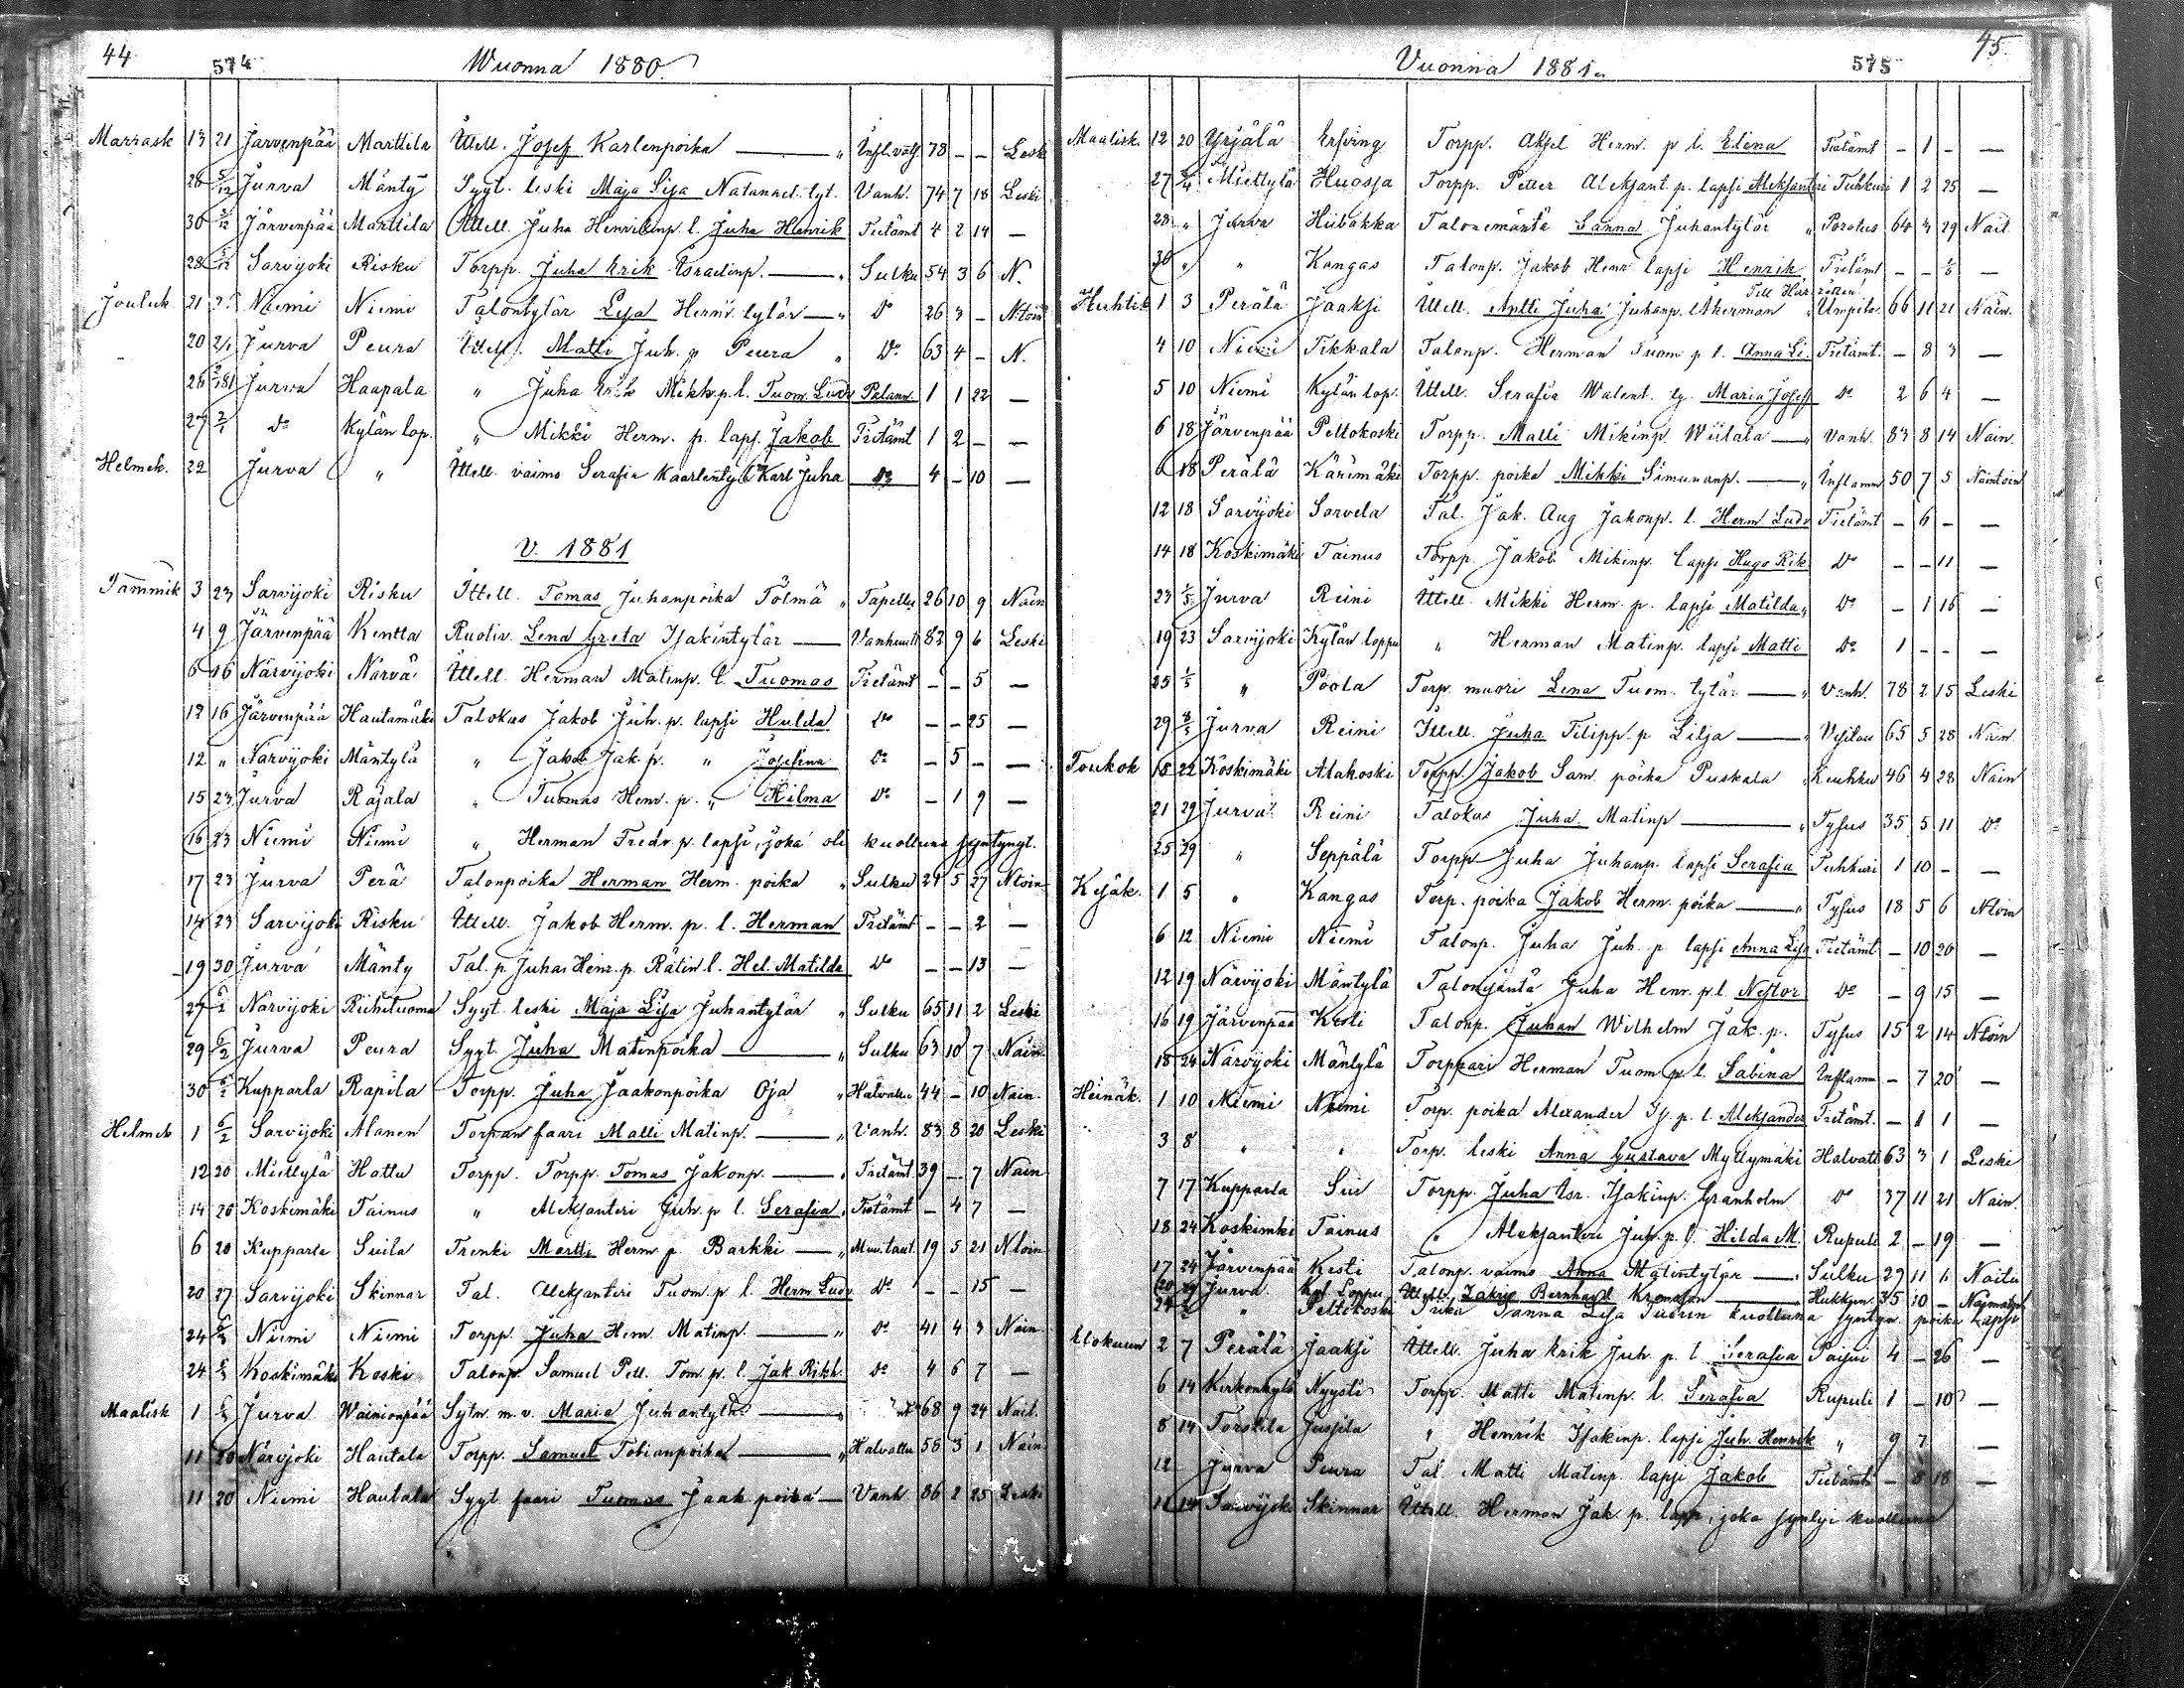 44
574
Wuonna 1880.
Marrask 13 21 Järvenpää Marttila Ittell. Josef Karlenpoika — " Infl.valf 78 - - Lesk
26 5/12 Jurva Mänty Sygt. leski Maja Lisa Natanael. tyt. Vanh. 74 7 18 Leski
30 5/12 Järvenpää Marttila Ittell. Juha Henrikinp. l. Juha Henrik Tietämt 4 2 14 —
28 5/12 Sarvijoki Risku Torpp. Juha Erik Israelinp. — " Sulku 54 3 6 N.
Jouluk 21 Niemi Niemi Talontytär Lisa Henr. tytär — " Do 26 3 - Ntoin
20 2/1 Jurva Peura Ittell. Matti Juh. p Peura " Do 63 4 - N.
26 Jurva Haapala " Juha Erik Mikk. p. l. Tuom. Ludv Palann. 1 1 22 —
27 2/1 Do Kylän lop. " Mikki Herm. p. laps. Jakob Tietämt 1 2 - —
Helmek. 22 Jurva " Ittell. vaimo Serafia Kaarlentyt. l. Karl Juha Do 4 - 10 —
V. 1881
Tammik 3 23 Sarvijoki Risku Ittell. Tomas Juhanpoika Tölmä " Tapellu 26 10 9 Nain
4 9 Järvenpää Kentta Ruotiv. Lena Greta Isakintytär — Vanhuutt 83 9 6 Leski
6 16 Närvijoki Närvä Ittell. Herman Matinp. l. Tuomas Tietämt - - 5 —
12 16 Järvenpää Hautamäki Talokas Jakob Juh. p. lapsi Hulda Do - - 25 —
12 " Närvijoki Mäntylä " Jakob Jak. p. " Josefina Do - 5 - —
15 23 Jurva Rajala " Tuomas Henr. p. " Hilma Do - 1 9 —
16 23 Niemi Niemi " Herman Fredr. p. lapsi, joka oli kuolluna syntynyt.
17 23 Jurva Perä Talonpoika Herman Herm. poika " Sulku 29 5 27 Ntoin
14 23 Sarvijoki Risku Ittell. Jakob Herm. p. l. Herman Tietämt - - 2 —
19 30 Jurva Mänty Tal. p. Juhas Henr. p. Rätin l. Hel. Matilda Do - - 13 —
27 6/2 Närvijoki Riihituoma Sygt leski Maja Lisa Juhantytär " Sulku 65 11 2 Leski
29 6/2 Jurva Peura Sygt. Juha Matinpoika — " Sulku 63 10 7 Nain
30 6/2 Kupparla Rapila Torpp. Juha Jaakonpoika Oja " Halvattu 44 - 10 Nain.
Helmek 1 6/2 Sarvijoki Alanen Torpan faari Matti Matinp. — " Vanh. 83 8 20 Leski
12 20 Miettylä Hattu Torpp. Torpp. Tomas Jakonp. — " Tietämt 39 - 7 Nain
14 20 Koskimäki Tainus " Aleksanteri Juh. p l. Serafia Tietämt - 4 7 —
6 20 Kupparla Suila Trenki Martti Herm. p Barkki — " Muu. taut 19 5 21 Ntoin
20 27 Sarvijoki Skinnar Tal. Aleksanteri Tuom. p l. Herm Ludv Do - - 15 —
24 6/3 Niemi Niemi Torpp. Juha Henr. Matinp. — " Do 41 4 3 Nain
24 6/3 Koskimäki Koski Talonp. Samuel Pett. Tom. p. l. Jak. Rikh. Do 4 6 7 —
Maalisk 1 6/3 Jurva Wainionpää Sytn m. v. Maria Juhantytär — " 68 9 24 Nait.
11 20 Närvijoki Hautala Torpp. Samuel Tobianpoika — " Halvattu 58 3 1 Nain
11 20 Niemi Hautala Sygt faari Tuomas Jaak poika — Vanh 86 2 25 Leski
45
Vuonna 1881.
575
Maalisk. 12 20 Yrjälä Erfving Torpp. Aksel Herm. p l. Elina Tietämt - 1 - —
27 3/4 Miettylä Huosja Torpp. Petter Aleksant. p. lapsi Aleksanteri Tuhkuri 1 2 25 —
28 " Jurva Hiibakka Talonemäntä Sanna Juhantytär " Porotus 64 3 29 Nait
30 " " Kangas Talonp. Jakob Henr lapsi Henrik Tietämt - - —
Huhtik 1 3 Perälä Jaaksi Ittell. Antti Juha Juhanp. Åkerman " Umpita. 66 11 21 Nain.
4 10 Niemi Tikkala Talonp. Herman Tuom p l. Anna Li. Tietämt. - 8 3 —
5 10 Niemi Kylän lop. Ittell. Serafia Walent. ty. Maria Josef Do 2 6 4 —
6 18 Järvenpää Peltokoski Torpp. Matti Mikinp. Wiitala — " Vanh. 83 8 14 Nain.
6 18 Perälä Kärimäki Torpp. poika Mikki Simunanp. — " Inflamm. 50 7 5 Naimtoin
12 18 Sarvijoki Sarvela Tal. Jak. Aug Jakonp. l. Herm Ludv Tietämt - 6 - —
14 18 Koskimäki Tainus Torpp. Jakob Mikinp. lapsi Hugo Rik Do - - 11 —
23 1/5 Jurva Reini Ittell. Mikki Herm. p. lapsi Matilda " Do - 1 16 —
19 23 Sarvijoki Kylän loppu " Herman Matinp. lapsi Matti Do 1 - - —
25 1/5 " Poola Torp. muori Lena Tuom. tytär — " Vanh. 78 2 15 Leski
29 8/5 Jurva Reini Ittell. Juha Filipp. p Lilja — " Vesitau 65 5 28 Nain
Toukok 15 22 Koskimäki Alakoski Torpp. Jakob Sam. poika Puskala " Keuhku 46 4 28 Nain
21 29 Jurva Reini Talokas Juha Matinp — " Tyfus 35 5 11 Do
25 29 " Seppälä Torpp Juha Juhanp. lapsi Serafia Tuhkuri 1 10 - —
Kesäk. 1 5 " Kangas Torp. poika Jakob Herm. poika — " Tyfus 18 5 6 Ntoin
6 12 Niemi Niemi Talonp. Juha Juh. p lapsi Anna Lisa Tietämt - 10 20 —
12 19 Närvijoki Mäntylä Talonisäntä Juha Henr. p. l. Nestor Do - 9 15 —
16 19 Järvenpää Kesti Talonp. Juhan Wilhelm Jak. p. Tyfus 15 2 14 Ntoin
18 24 Närvijoki Mäntylä Torppari Herman Tuom. p l. Sabina Inflamm - 7 20 —
Heinäk. 1 10 Niemi Niemi Torp. poika Alexander Is. p. l. Aleksander Tietämt. - 1 1 —
3 8 " " Torp. leski Anna Gustava Myllymäki Halvatt 63 3 1 Leski
7 17 Kupparla Sui Torpp. Juha Isr. Isakinp. Granholm Do 37 11 21 Nain.
18 24 Koskimki Tainus " Aleksanteri Juh. p. l. Hilda M. Rupuli 2 - 19 —
17 24 Järvenpää Kesti Talonp. vaimo Anna Matintytär — Sulku 29 11 6 Naitu
20 Jurva Kyl. Loppu Ittell. Zakris Bernhard — Hukkun. 35 10 -
" Peltokoski Piika Sanna Lisa kuolluna syntyn. poika lapsi
Elokuun 2 7 Perälä Jaaksi Ittell. Juha Erik Juh. p. l Serafia Paisui 4 - 26 —
6 14 Kirkonkylä Nyysti Torpp. Matti Matinp. l. Serafia Rupuli 1 - 10 —
8 14 Torskila Jussila " Henrik Isakinp. lapsi Juh. Henrik " 9 7 —
12 Jurva Peura Tal. Matti Matinp. lapsi Jakob Tietämt - 8 18 —
11 14 Sarvijoki Skinnar Ittell. Herman Jak. p. lapsi, joka syntyi kuolluna